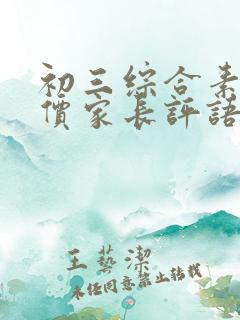 初三綜合素
價家長評語
王藝潔
未经同意禁止转载